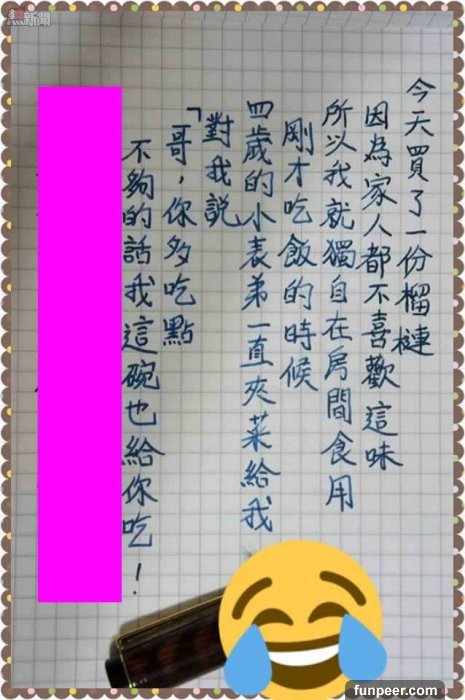 今天買了一份榴槤
因為家人都不喜歡這味
所以我就獨自在房間食用
剛才吃飯的時候
四歲的小表弟一直夾菜給我
對我說
「哥，你多吃點
不夠的話我這碗也給你吃！
新聞
funpeer.com